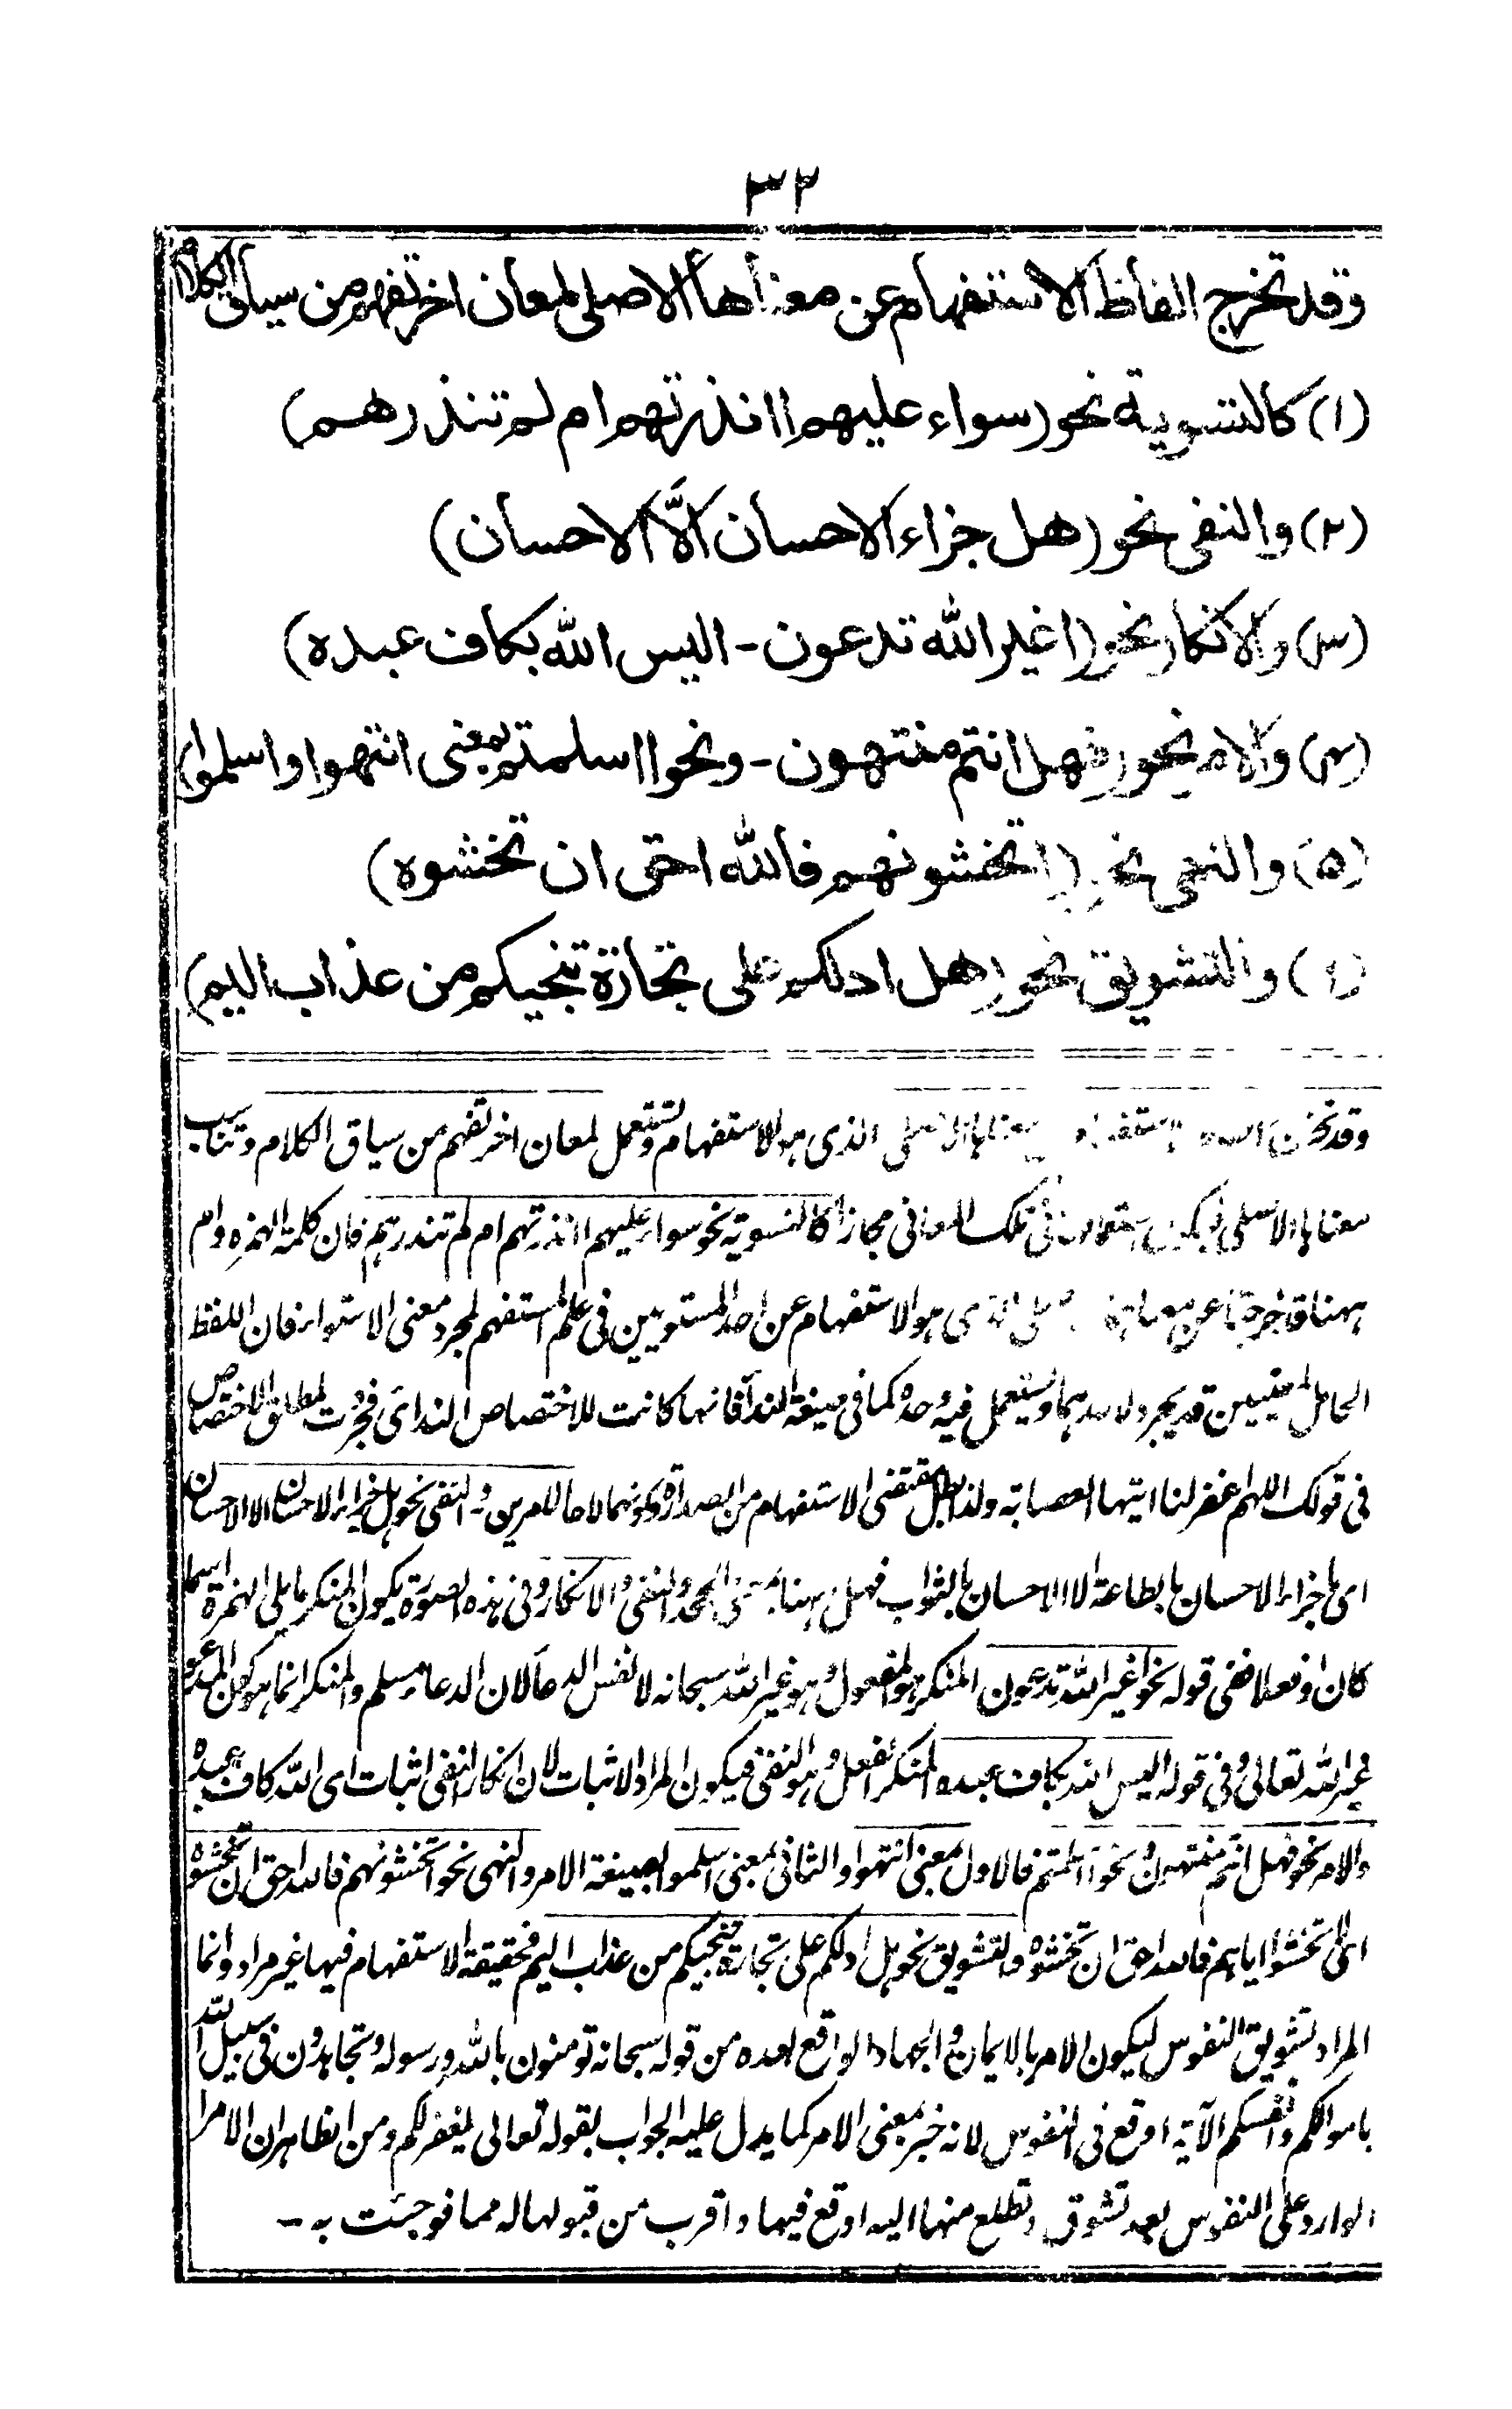 ٣٢
وقد تخرج الفاظ الاستفهام عن معناها الاصلى لمعان اخر تفهم من سياق الكلام
(١) كالتسوية نحو (سواء عليهم اانذرتهم ام لم تنذرهم)
(٢) والنفى نحو (هل جزاء الاحسان الَّا الاحسان)
(٣) والانكار نحو (اغير الله تدعون - اليس الله بكاف عبده)
(٤) والامر نحو (فهل انتم منتهون - ونحو ااسلمتم بمعنى انتهوا واسلموا)
(٥) والنهى نحو (اتخشونهم فالله احق ان تخشوه)
(٦) والتشويق نحو (هل ادلكم على تجارة تنجيكم من عذاب اليم)
وقد تخرج الفاظ الاستفهام معناها الاصلى الذى هو الاستفهام وتستعمل لمعان اخر تفهم من سياق الكلام وتناسب
معناها الاصلى فيكون استعمالها فى تلك المعانى مجازا كالتسوية نحو سواء عليهم اانذرتهم ام لم تنذرهم فان كلمة الهمزه وام
ههنا قد خرجتا عن معناهما الاصلى الذى هو الاستفهام عن احد المستويين فى علم المستفهم لمجرد معنى الاستواء فان اللفظ
الحامل لمعنيين قد يجرد لاحدهما ويستعمل فيه وحده كما فى صيغة النداء فانها كانت للاختصاص الندائى فجردت لمطلق الاختصاص
فى قولك اللهم اغفر لنا ايتها العصابة ولذا بطل مقتضى الاستفهام من الصدارة وكونهما لاحد الامرين والنفى نحو هل جزاء الاحسان الا الاحسان
اى ما جزاء الاحسان بالطاعة الا الاحسان بالثواب فهل ههنا بمعنى الجحد والنفى والانكار وفى هذه الصورة يكون المنكر ما يلى الهمزة اسما
كان او فعلا ففى قوله نحو اغير الله تدعون المنكر هو المفعول وهو غير الله سبحانه لا نفس الدعاء لان الدعاء مسلم والمنكر انما هو كون المدعو
غير الله تعالى وفى قوله اليس الله بكاف عبده المنكر الفعل وهو النفى فيكون المراد الاثبات لان انكار النفى اثبات اى الله كاف عبده
والامر نحو فهل انتم منتهون ونحو ااسلمتم فالاول بمعنى انتهوا والثانى بمعنى اسلموا بصيغة الامر والنهى نحو اتخشونهم فالله احق ان تخشوه
اى لا تخشوا اياهم فالله احق ان تخشوه والتشويق نحو هل ادلكم على تجارة تنجيكم من عذاب اليم فحقيقة الاستفهام فيها غير مراد وانما
المراد تشويق النفوس ليكون الامر بالايمان والجهاد الواقع بعده من قوله سبحانه تومنون بالله ورسوله وتجاهدون فى سبيل الله
باموالكم وانفسكم الآية اوقع فى النفوس لانه خبر بمعنى الامر كما يدل عليه الجواب بقوله تعالى يغفر لكم ومن الظاهر ان الامر
الوارد على النفوس بعد تشوق وتطلع منها اليه اوقع فيها واقرب من قبولها له مما فوجئت به -